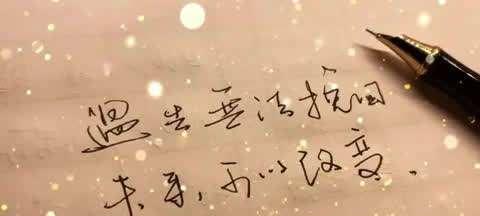 過去無法挽回
未来,可以改变.